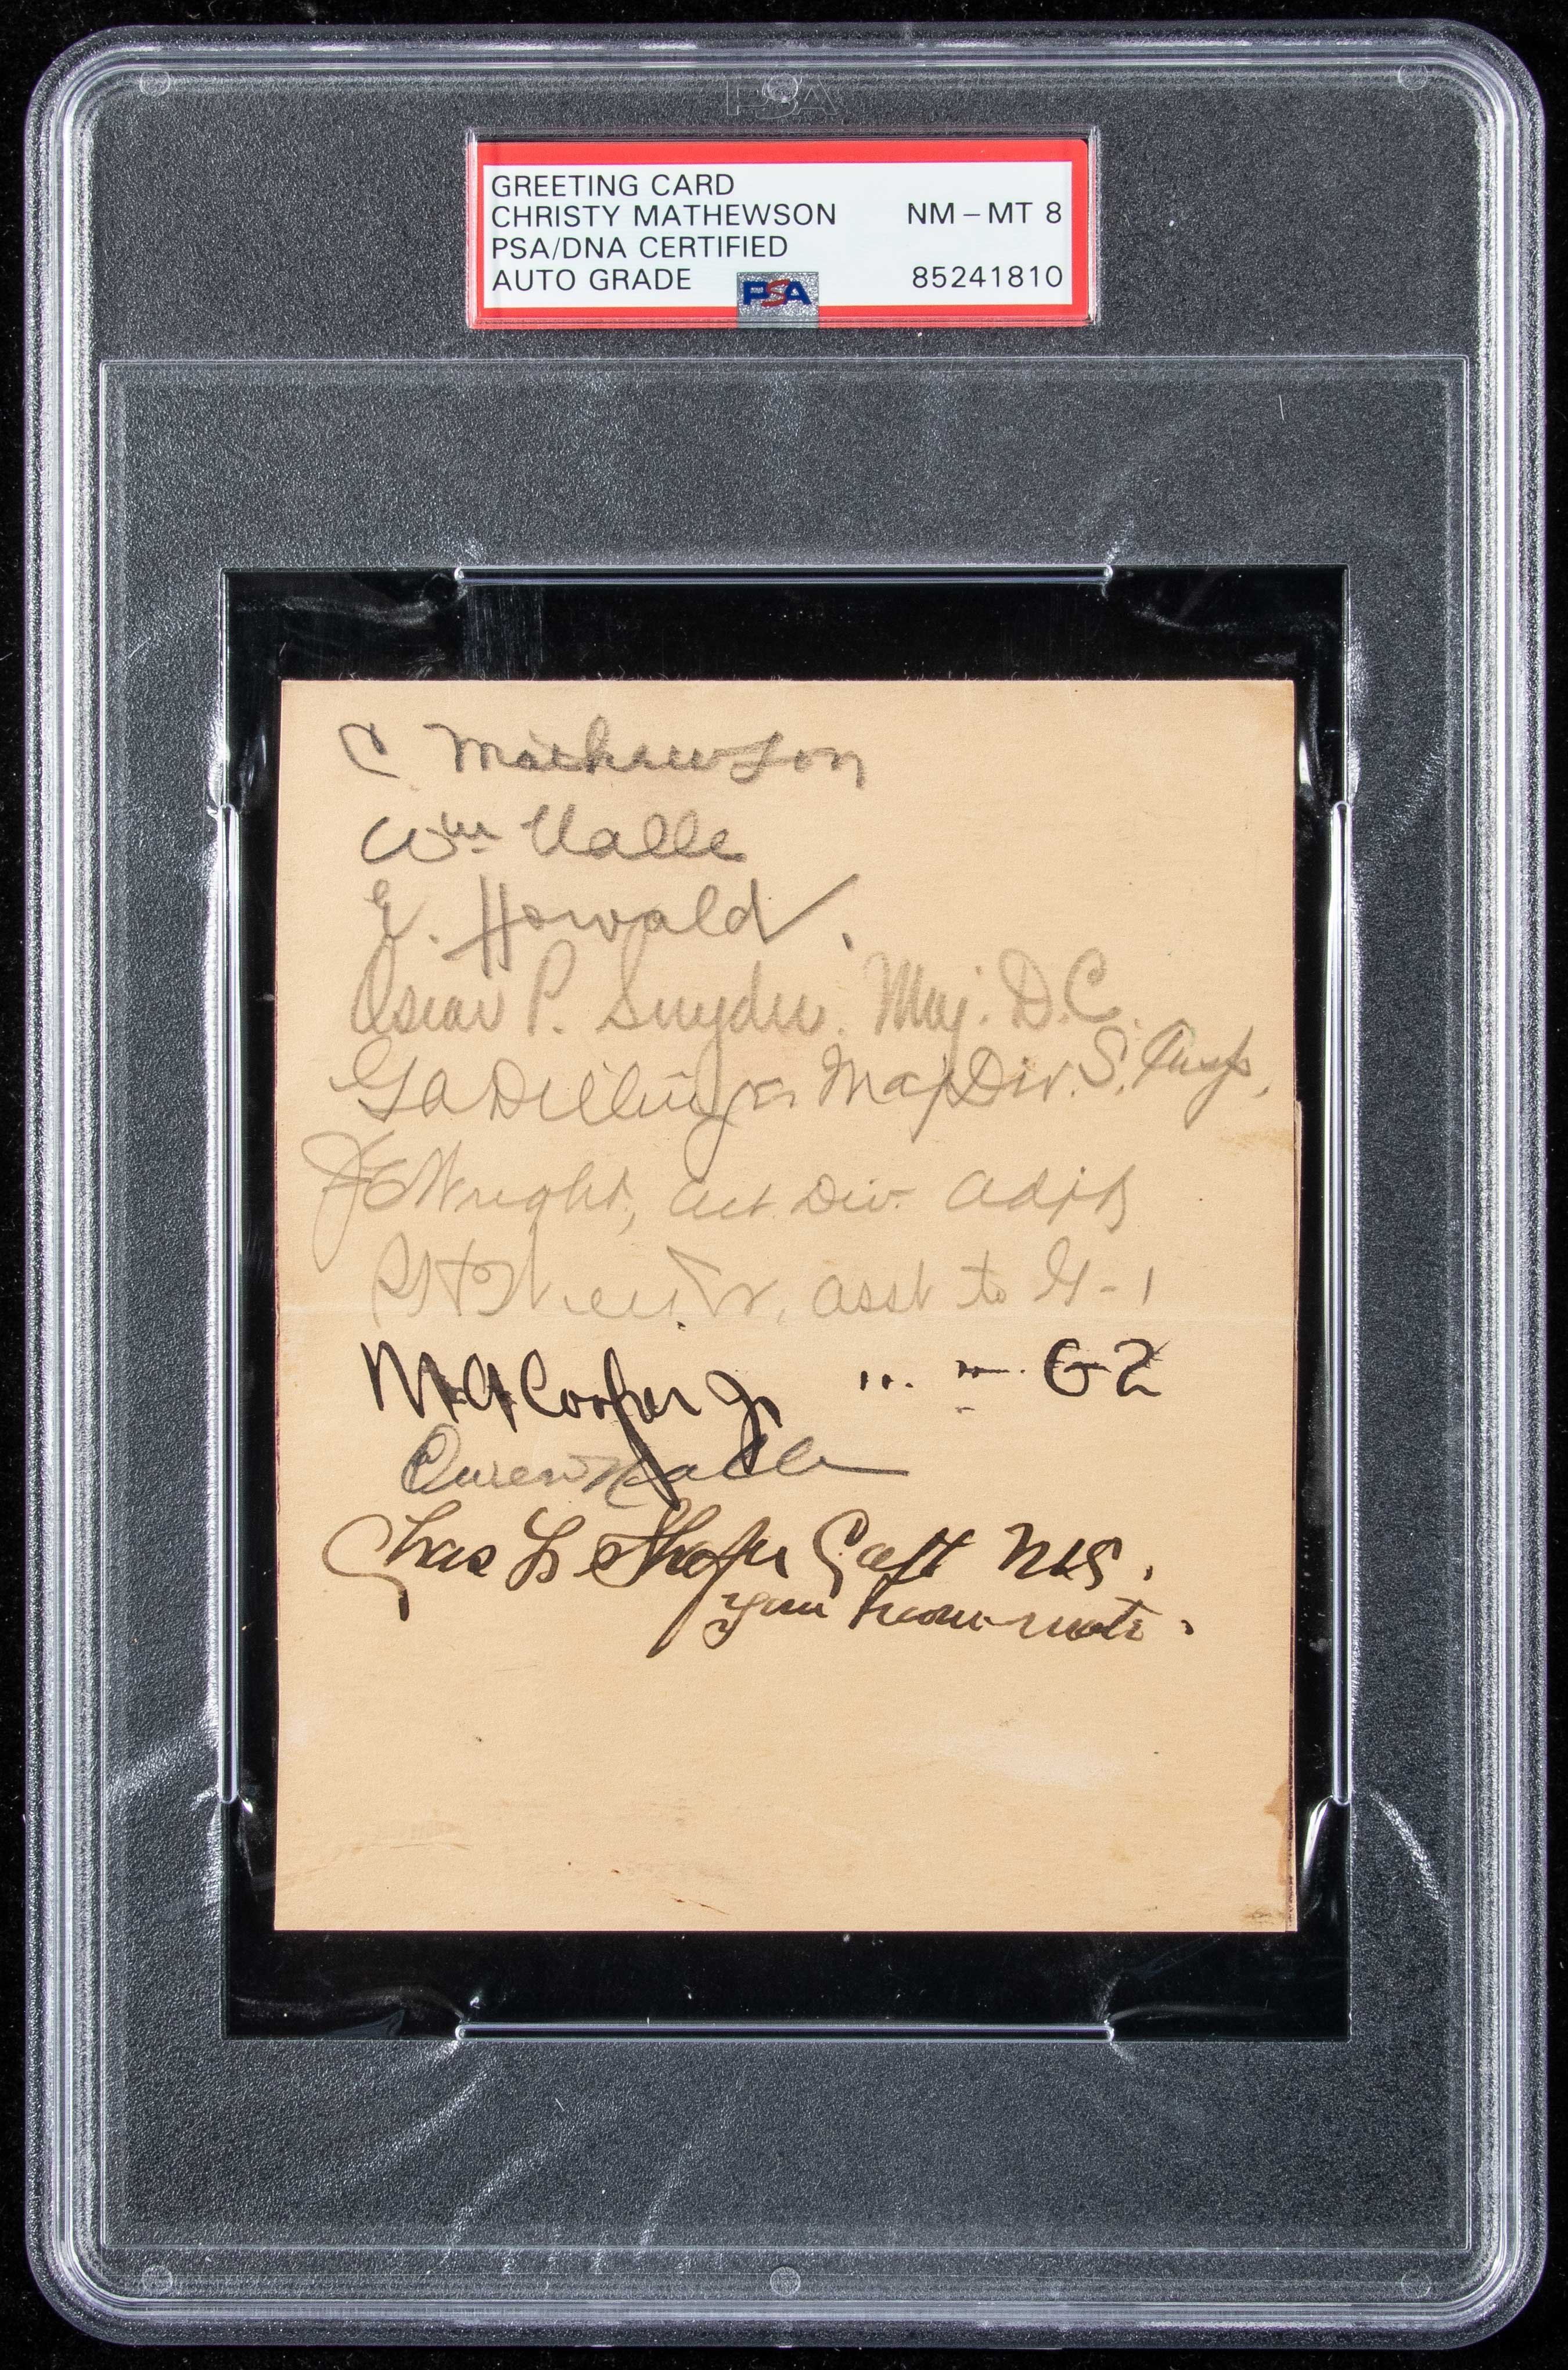 PSA
GREETING CARD
CHRISTY MATHEWSON NM-MT 8
PSA/DNA CERTIFIED
AUTO GRADE PSA 85241810
C Mathewson
Wm Nalle
E. Howald.
Oscar P. Snyder. Maj. D.C.
GADillinger Maj Div. S.
JEWright, Act. Div. Adjt
asst to G-1
M A Cooper Jr " " G2
Owen
Chas L. Shafer Capt
your room-mate.